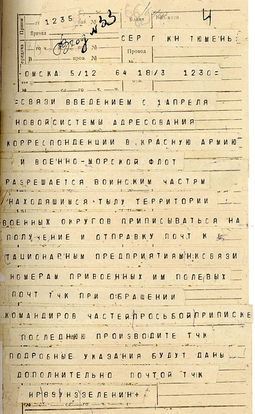 1235
4
№33
СЕР Г КН ТЮМЕНЬ:
ОМСКА 5/12 64 18/3 1230=
=СВЯЗИ ВВЕДЕНИЕМ С 1 АПРЕЛЯ
НОВОЙ СИСТЕМЫ АДРЕСОВАНИЯ
КОРРЕСПОНДЕНЦИИ В КРАСНУЮ АРМИЮ
И ВОЕННО-МОРСКОЙ ФЛОТ
РАЗРЕШАЕТСЯ ВОИНСКИМ ЧАСТЯМ
НАХОДЯЩИМСЯ ТЫЛУ ТЕРРИТОРИИ
ВОЕННЫХ ОКРУГОВ ПРИПИСЫВАТЬСЯ НА
ПОЛУЧЕНИЕ И ОТПРАВКУ ПОЧТ К
ТАЦИОНАРНЫМ ПРЕДПРИЯТИЯМ НК СВЯЗИ
НОМЕРАМ ПРИВОЕННЫХ ИМ ПОЛЕВЫХ
ПОЧТ ТЧК ПРИ ОБРАЩЕНИИ
КОМАНДИРОВ ЧАСТЕЙ ПРОСЬБОЙ ПРИПИСКЕ
ПОСЛЕДНЮЮ ПРОИЗВОДИТЕ ТЧК
ПОДРОБНЫЕ УКАЗАНИЯ БУДУТ ДАНЫ
ДОПОЛНИТЕЛЬНО ПОЧТОЙ ТЧК
НР89УНЗ ЗЕЛЕНИН+